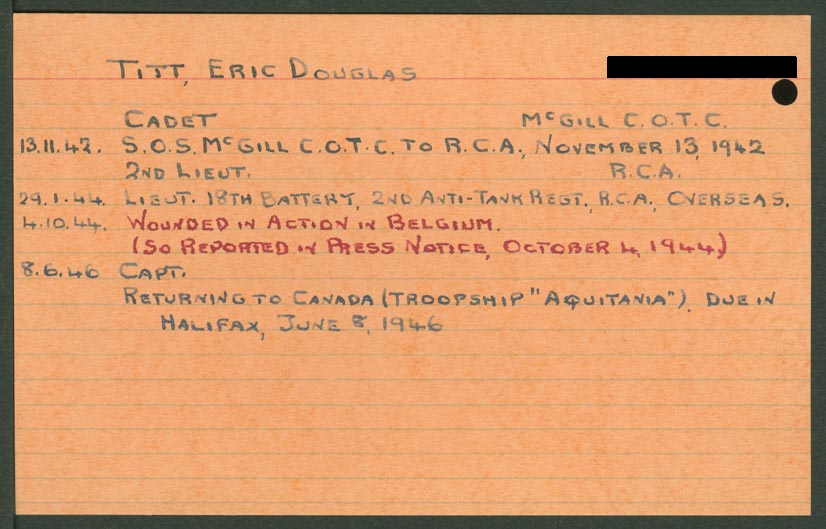 TITT, ERIC DOUGLAS
CADET McGILL C.O.T.C.
13.11.42. S.O.S. McGILL C.O.T.C. TO R.C.A., NOVEMBER 13, 1942
2ND LIEUT. R.C.A.
29.1.44. LIEUT. 18TH BATTERY, 2ND ANTI-TANK REGT., R.C.A., OVERSEAS.
4.10.44. WOUNDED IN ACTION IN BELGIUM.
(SO REPORTED IN PRESS NOTICE, OCTOBER 4, 1944)
8.6.46 CAPT.
RETURNING TO CANADA (TROOPSHIP "AQUITANIA"). DUE IN
HALIFAX, JUNE 8, 1946